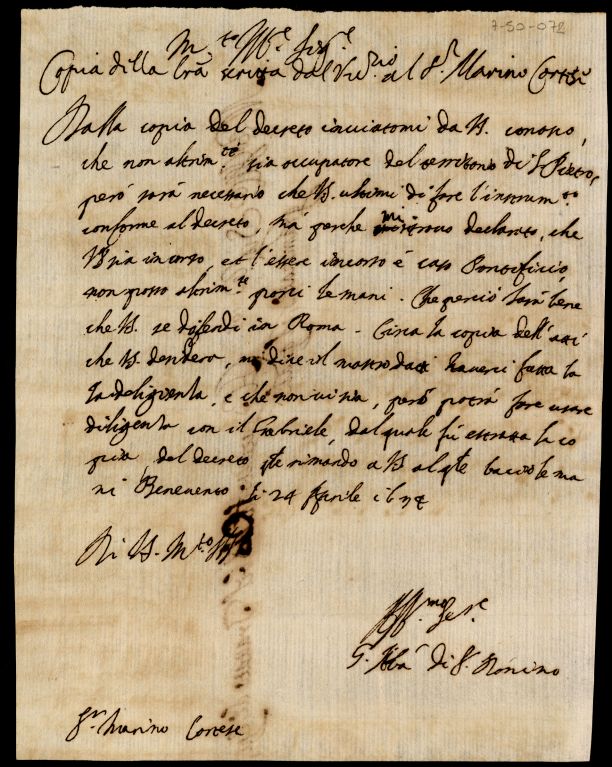 7-50-072
M.to Ill.e Sig.re
Copia della lra scritta dal Vic.rio al S.r Marino Cortese
Dalla copia del decreto inviatomi da V.S. conosco,
che non altrim.te sia occupatore del territorio di S. Pietro,
però sarà necessario che V.S. ultimi di fare l'instrum.to
conforme al decreto, mà perche mi trovo declarato, che
V.S. sia incorso, et l'essere incorso è caso Pontificio,
non posso altrim.te porci le mani. Che perciò sarà bene
che V.S. se difendi in Roma. Circa la copia dell'atti
che V.S. desidera, mi dice il mastrodatti haverci fatta la
la deligenta, e che non vi sia, però potrà fare usare
diligenta con il Gabriele, dal quale fù estratta la co
pia del decreto q.te rimando a V.S. al q.le baccio le ma
ni Benevento li 24 Aprile
Di V.S. M.to Ill.
Aff.mo Se.re
Abb. di S.
S.r Marino Cortese